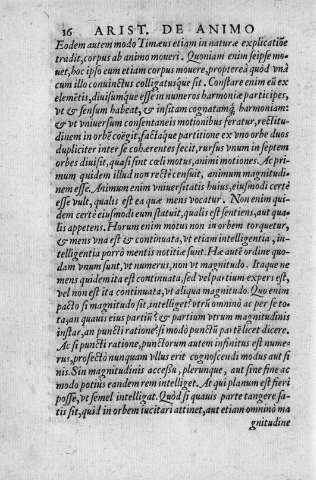 16 ARIST. DE ANIMO
Eodem autem modo Timæus etiam in naturæ explicatiõe
tradit, corpus ab animo moueri. Quoniam enim seipse mo-
uet, hoc ipso eum etiam corpus mouere, proptereà quòd vnà
cum illo conuinctus colligatusque sit. Constare enim eũ ex
elemẽtis, diuisumque esse in numeros harmoniæ participes,
vt & sensum habeat, & insitam cognatamq́ harmoniam:
& vt vniuersum consentaneis motionibus feratur, rectitu-
dinem in orbẽ coëgit, factaque partitione ex vno orbe duos
dupliciter inter se cohærentes fecit, rursus vnum in septem
orbes diuisit, quasi sint cœli motus, animi motiones. Ac pri-
mum quidem illud non rectè censuit, animum magnitudi-
nem esse. Animum enim vniuersitatis huius, eiusmodi certè
esse vult, qualis est ea quæ mens vocatur. Non enim qui-
dem certè eiusmodi eum statuit, qualis est sentiens, aut qua-
lis appetens. Horum enim motus non in orbem torquetur,
& mens vna est & continuata, vt etiam intelligentia, in-
telligentia porrò mentis notitiæ sunt. Hæ autẽ ordine quo-
dam vnum sunt, vt numerus, non vt magnitudo. Itaque ne
mens quidem ita est continuata, sed vel partium expers est,
vel non est ita continuata, vt aliqua magnitudo. Quo enim
pacto si magnitudo sit, intelliget? vtrũ omninò ac per se to-
ta, an quauis eius partiũ? & partium vtrum magnitudinis
instar, an puncti ratione? si modò punctũ partẽ licet dicere.
Ac si puncti ratione, punctorum autem infinitus est nume-
rus, profectò nunquam vllus erit cognoscendi modus aut fi-
nis. Sin magnitudinis accessu, plerunque, aut sine fine ac
modo potiùs eandem rem intelliget. At qui planum est fieri
posse, vt semel intelligat. Quòd si quauis parte tangere sa-
tis sit, quid in orbem iactari attinet, aut etiam omninò ma
gnitudine